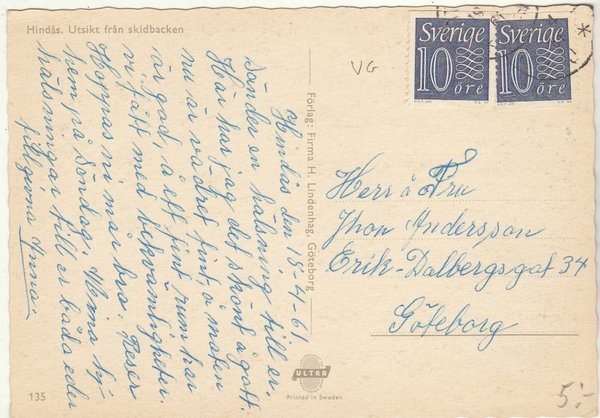 Hindås. Utsikt från skidbacken
Hindås den 18-4-61
Sänder en hälsning till er.
Här har jag det skönt o gott.
nu är vädret fint, o maten
är god, å ett fint rum har
vi fått med bekvämligheter.
Hoppas ni mår bra. Reser
hem på Söndag. Mina
hälsningar till er båda eder
tillgivna Anna.
Förlag: Firma H. Lindenhag, Göteborg
VG
Sverige
10 öre
Sverige
10 öre
Herr å Fru
Jhon Andersson
Erik-Dalbergsgat 34
Göteborg
ULTRA
Printed in Sweden
135
5:-